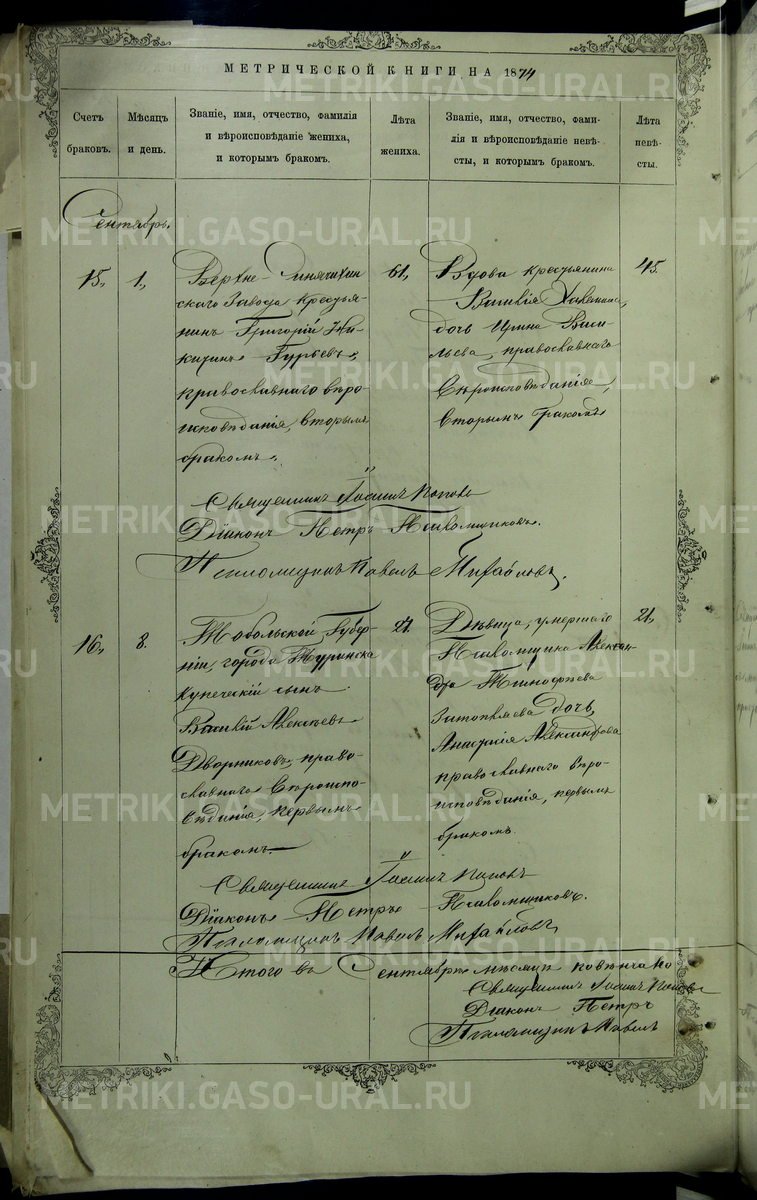 МЕТРИЧЕСКОЙ КНИГИ НА 1874
Счетъ браковъ.
Мѣсяцъ и день.
Званіе, имя, отчество, фамилія
и вѣроисповѣданіе жениха,
и которымъ бракомъ.
Лѣта жениха.
Званіе, имя, отчество, фами-
лія и вѣроисповѣданіе невѣ-
сты, и которымъ бракомъ.
Лѣта невѣ-
сты.
Сентябрь.
15, 1,
Верхне-Синячихин
скаго Завода крестья-
нинъ Григорій Ни-
китинъ Гурьевъ,
православнаго вѣро-
исповѣданія, вторымъ
бракомъ.
61,
Вдова крестьянина
Василія
дочь Ирина Васи-
льева, православнаго
вѣроисповѣданія,
вторымъ бракомъ
45.
Священникъ Іоаннъ Поповъ
Діаконъ Петръ Псаломщиковъ.
Псаломщикъ Павелъ Михайловъ.
16, 8.
Тобольской Губер-
ніи, города Туринска
купеческій сынъ
Василій Алексѣевъ
Дворниковъ, право-
славнаго вѣроиспо-
вѣданія, первымъ
бракомъ.
Дѣвица, умершаго
Псаломщика Алексан-
дра Тимофѣева
дочь,
Анастасія Александрова
православнаго вѣро-
исповѣданія, первымъ
бракомъ.
21,
Священникъ Іоаннъ Поповъ
Діаконъ Петръ Псаломщиковъ.
Псаломщикъ Павелъ Михайловъ
Итого въ Сентябрѣ мѣсяцѣ повѣнчано
Священникъ Іоаннъ Поповъ
Діаконъ Петръ
Псаломщикъ Павелъ
METRIKI.GASO-URAL.RU